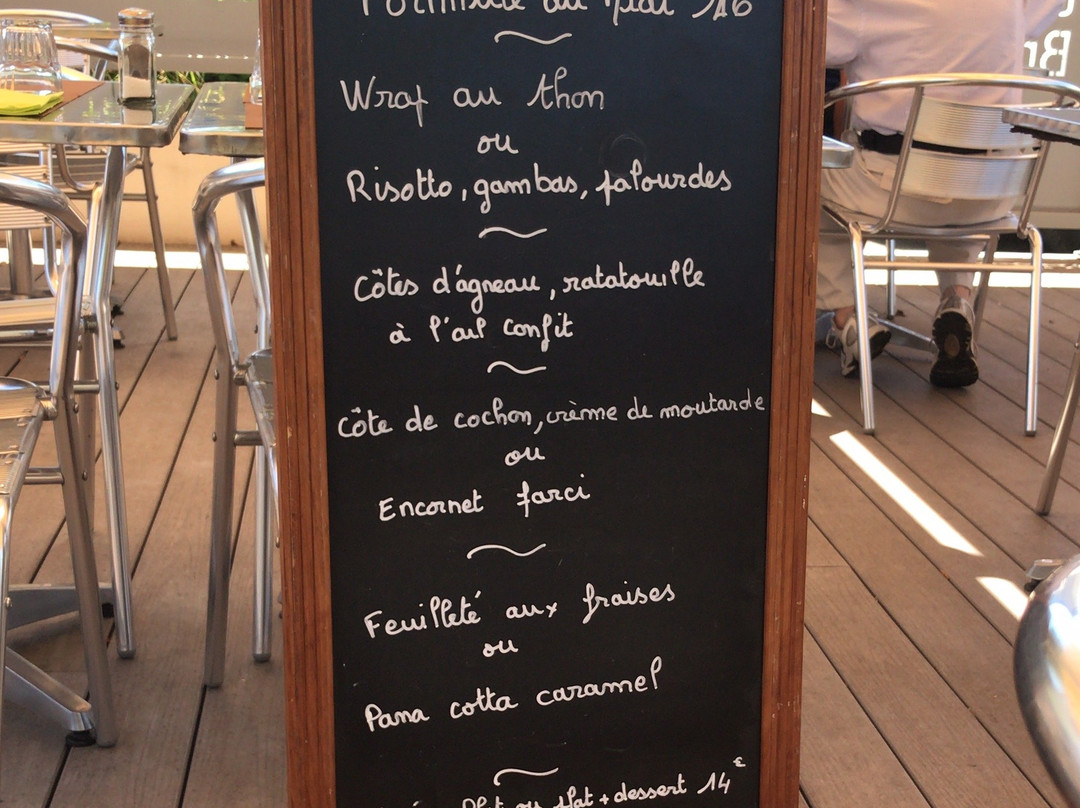 Formule du plat 16
Wrap au thon
ou
Risotto, gambas, palourdes
Côtes d'agneau, ratatouille
à l'ail confit
Côte de cochon, crème de moutarde
ou
Encornet farci
Feuilleté aux fraises
ou
Pana cotta caramel
ou plat + dessert 14€
Br